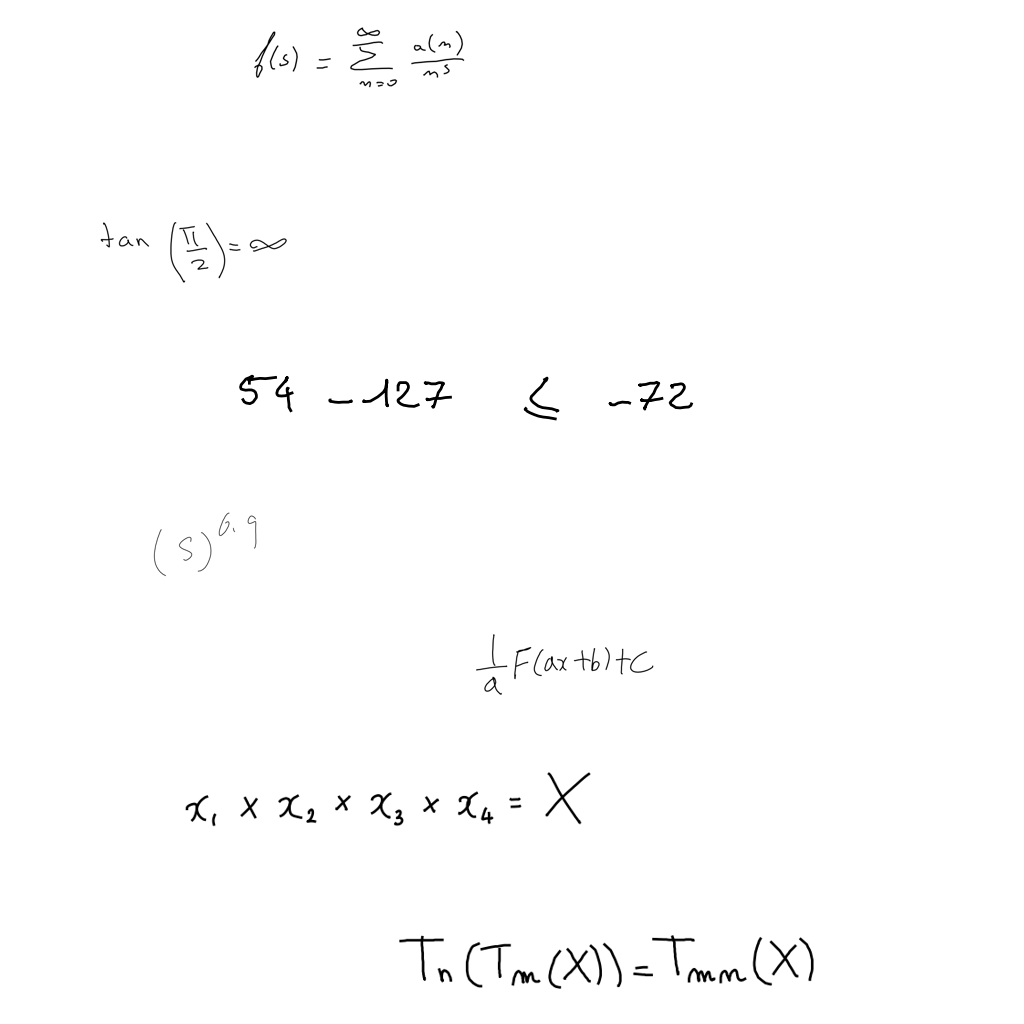 f(s) = \sum_{n=0}^{\infty} \frac{a(n)}{n^s}
tan (\frac{\pi}{2}) = \infty
54 - 127 \leq -72
(s)^{6.9}
\frac{1}{a} F(ax+b)+C
x_1 \times x_2 \times x_3 \times x_4 = X
T_n(T_m(X)) = T_{mn}(X)